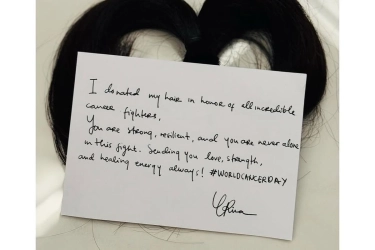 I donated my hair in honor of all incredible
cancer fighters.
You are strong, resilient, and you are never alone
in this fight. Sending you love, strength,
and healing energy always! #WORLDCANCERDAY